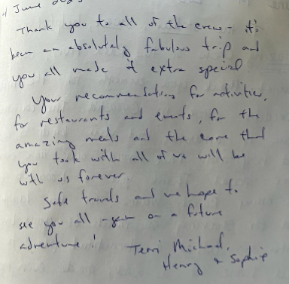 June
Thank you to all of the crew - it's
been an absolutely fabulous trip and
you all made it extra special
Your recommendations for activities,
for restaurants and events, for the
amazing meals and the care that
you took with all of us will be
with us forever
Safe travels and we hope to
see you all again on a future
adventure!
Terri, Michael,
Henry & Sophie